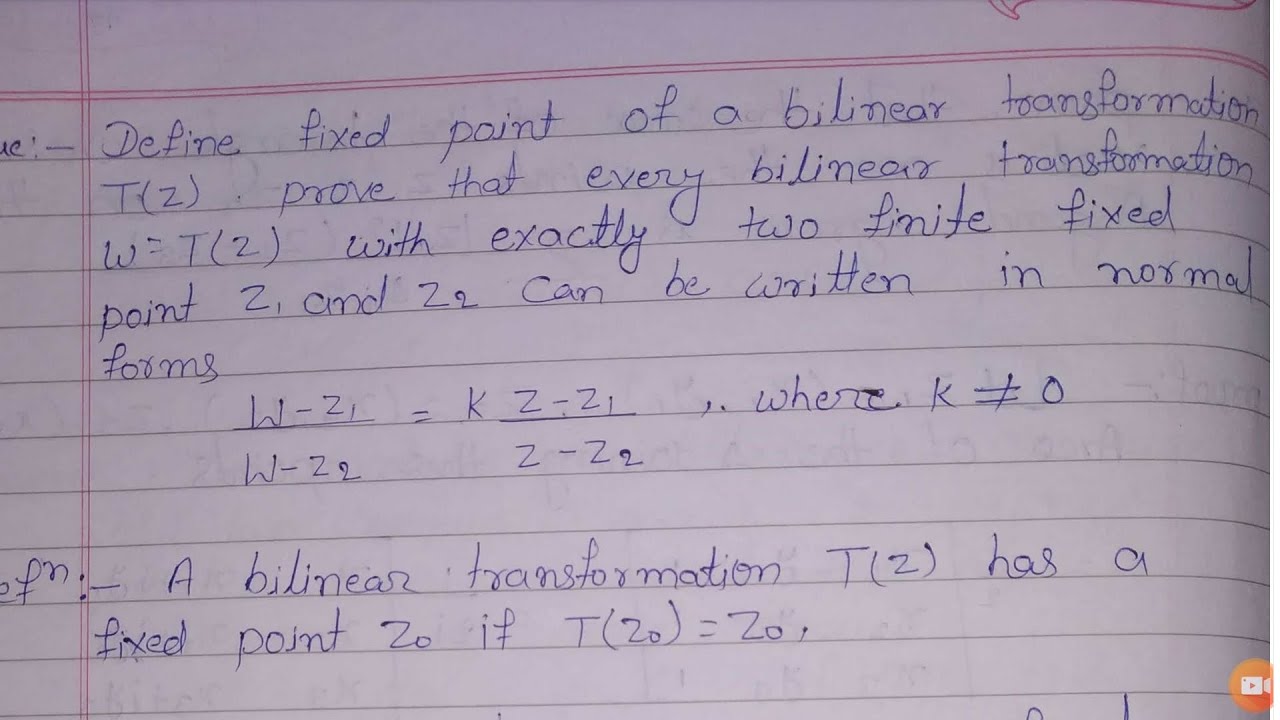 ue:- Define fixed point of a bilinear transformation
T(z). prove that every bilinear transformation
W=T(z) with exactly two finite fixed
point z₁ and z₂ can be written in normal
forms
W-z₁ = K z-z₁ , where K ≠ 0
W-z₂ z-z₂
efⁿ:- A bilinear transformation T(z) has a
fixed point z₀ if T(z₀)=z₀,